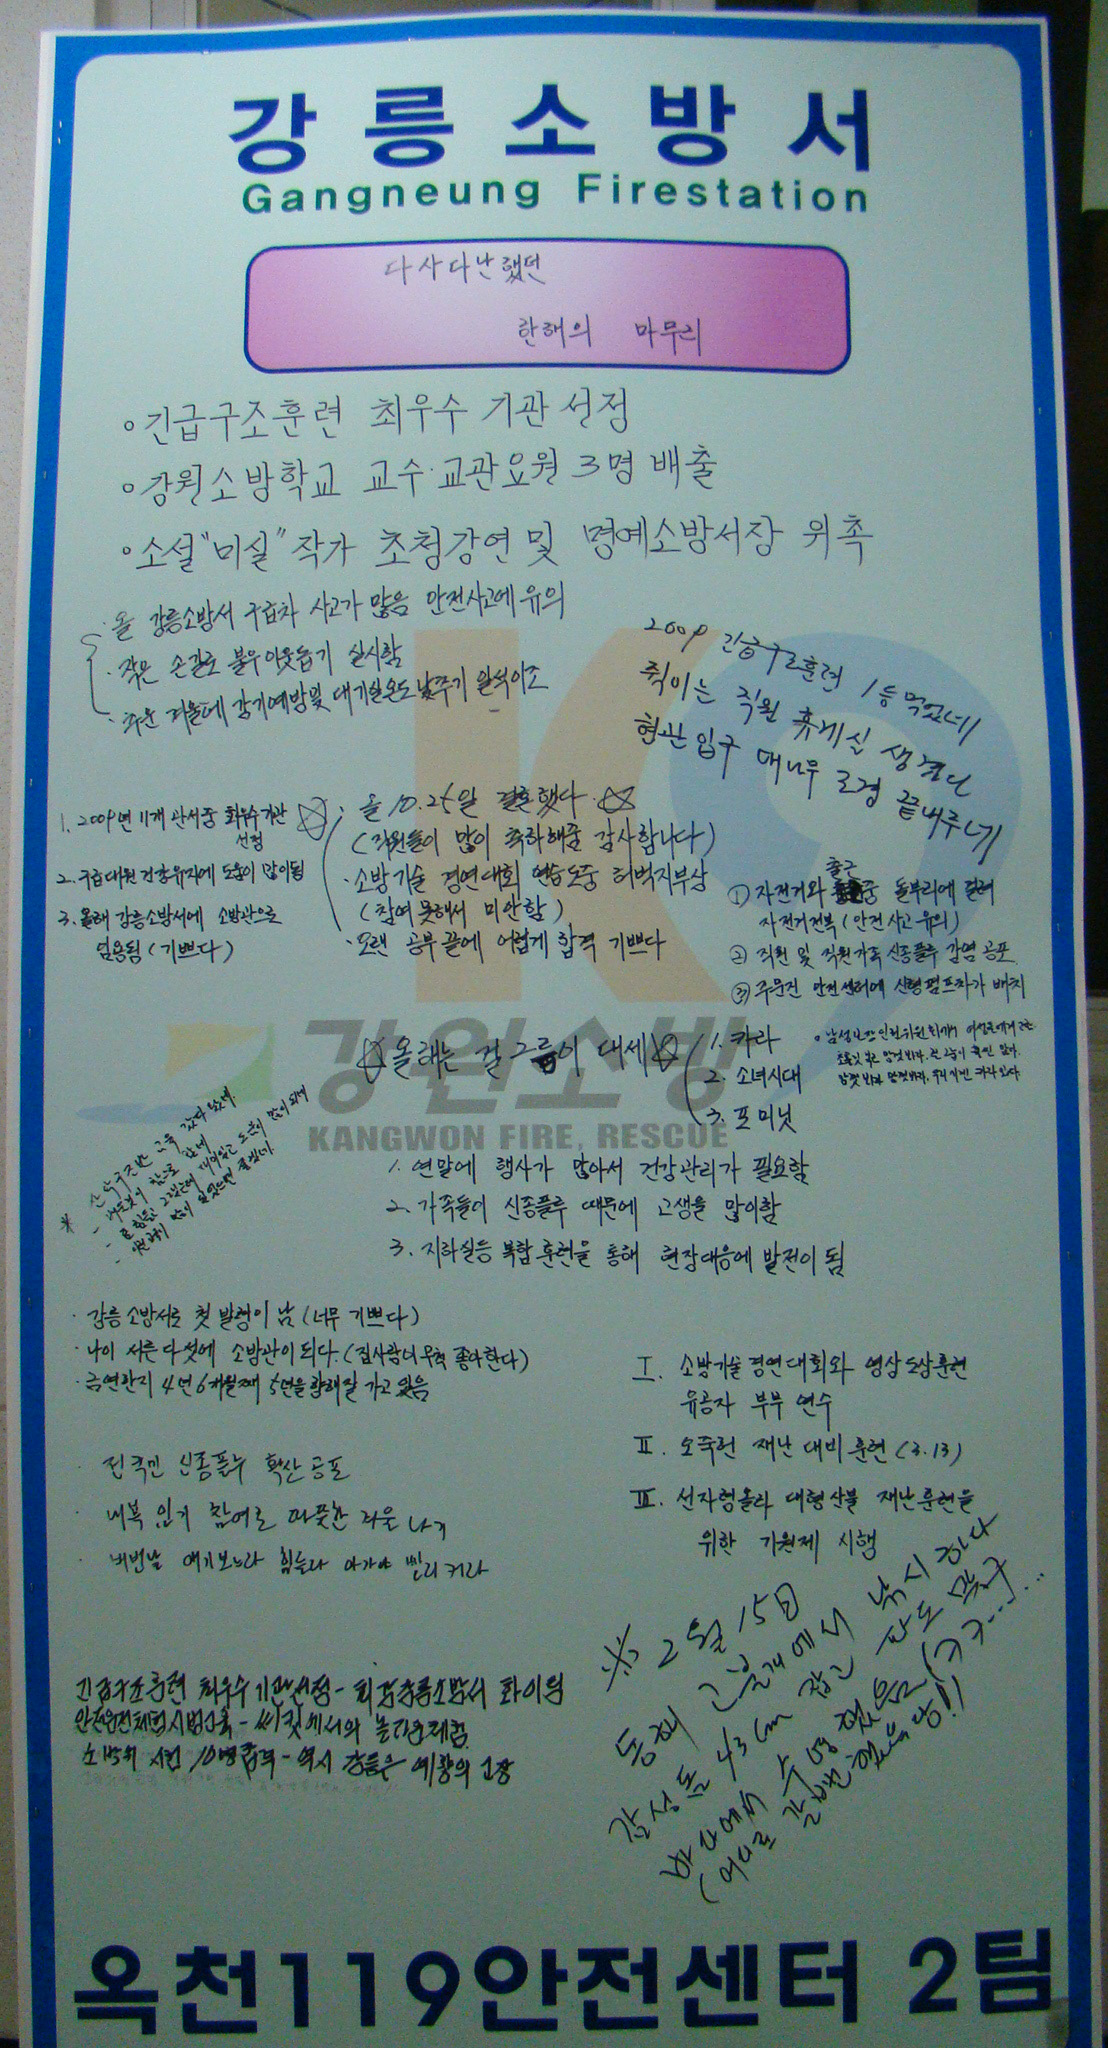 강릉소방서
Gangneung Firestation
다사다난했던
한해의 마무리
◦긴급구조훈련 최우수 기관 선정
◦강원소방학교 교수·교관요원 3명 배출
◦소설"미실"작가 초청강연 및 명예소방서장 위촉
·올 강릉소방서 구급차 사고가 많음 안전사고에 유의
·작은 손길로 불우이웃돕기 실시함
·추운 겨울에 감기예방및 대기실온도 낮추기 일석이조
2009 긴급구조훈련 1등 먹었네
죽이는 직원 휴게실 생겼다
현관 입구 대나무 조경 끝내주네
1. 2009년 11개 관서중 최우수기관
선정
2. 구급대원 건강유지에 도움이 많이됨
3. 올해 강릉소방서에 소방관으로
임용됨 (기쁘다)
·올 10.25일 결혼했다
(직원들이 많이 축하해줌 감사합니다)
·소방기술 경연대회 연습도중 허벅지부상
(참여못해서 미안함)
·오랜 공부 끝에 어렵게 합격 기쁘다
① 자전거와 출근중 돌부리에 걸려
자전거전복 (안전사고유의)
② 직원 및 직원가족 신종플루 감염 공포
③ 주문진 안전센터에 신형펌프차가 배치
강원소방
KANGWON FIRE, RESCUE
☆올래는 걸그룹이 대세☆
1. 카라
2. 소녀시대
3. 포미닛
1. 연말에 행사가 많아서 건강관리가 필요함
2. 가족들이 신종플루 때문에 고생을 많이함
3. 지하실등 복합훈련을 통해 현장대응에 발전이 됨
·강릉소방서로 첫 발령이 남 (너무 기쁘다)
·나이 서른다섯에 소방관이되다. (집사람너무척 좋아한다)
·금연한지 4년6개월째 5년을향해잘 가고있음
Ⅰ. 소방기술경연대회와 영상도상훈련
유공자 부부 연수
Ⅱ. 오죽헌 재난 대비 훈련 (3.13)
Ⅲ. 선자령올라 대형산불 재난훈련을
위한 기원제 시행
·전국민 신종플루 확산공포
·내복 입기 참여로 따뜻한 겨울 나기
·비번날 애기보느라 힘들다 아가야 빨리커라
긴급구조훈련 최우수기관선정-최강강릉소방서 화이팅
※ 2월 15일
동해 고불개에서 낚시하다
감성돔 43cm 잡고 파도 맞구
바다에서 수영했음(ㅋㅋ.....
옥천119안전센터 2팀